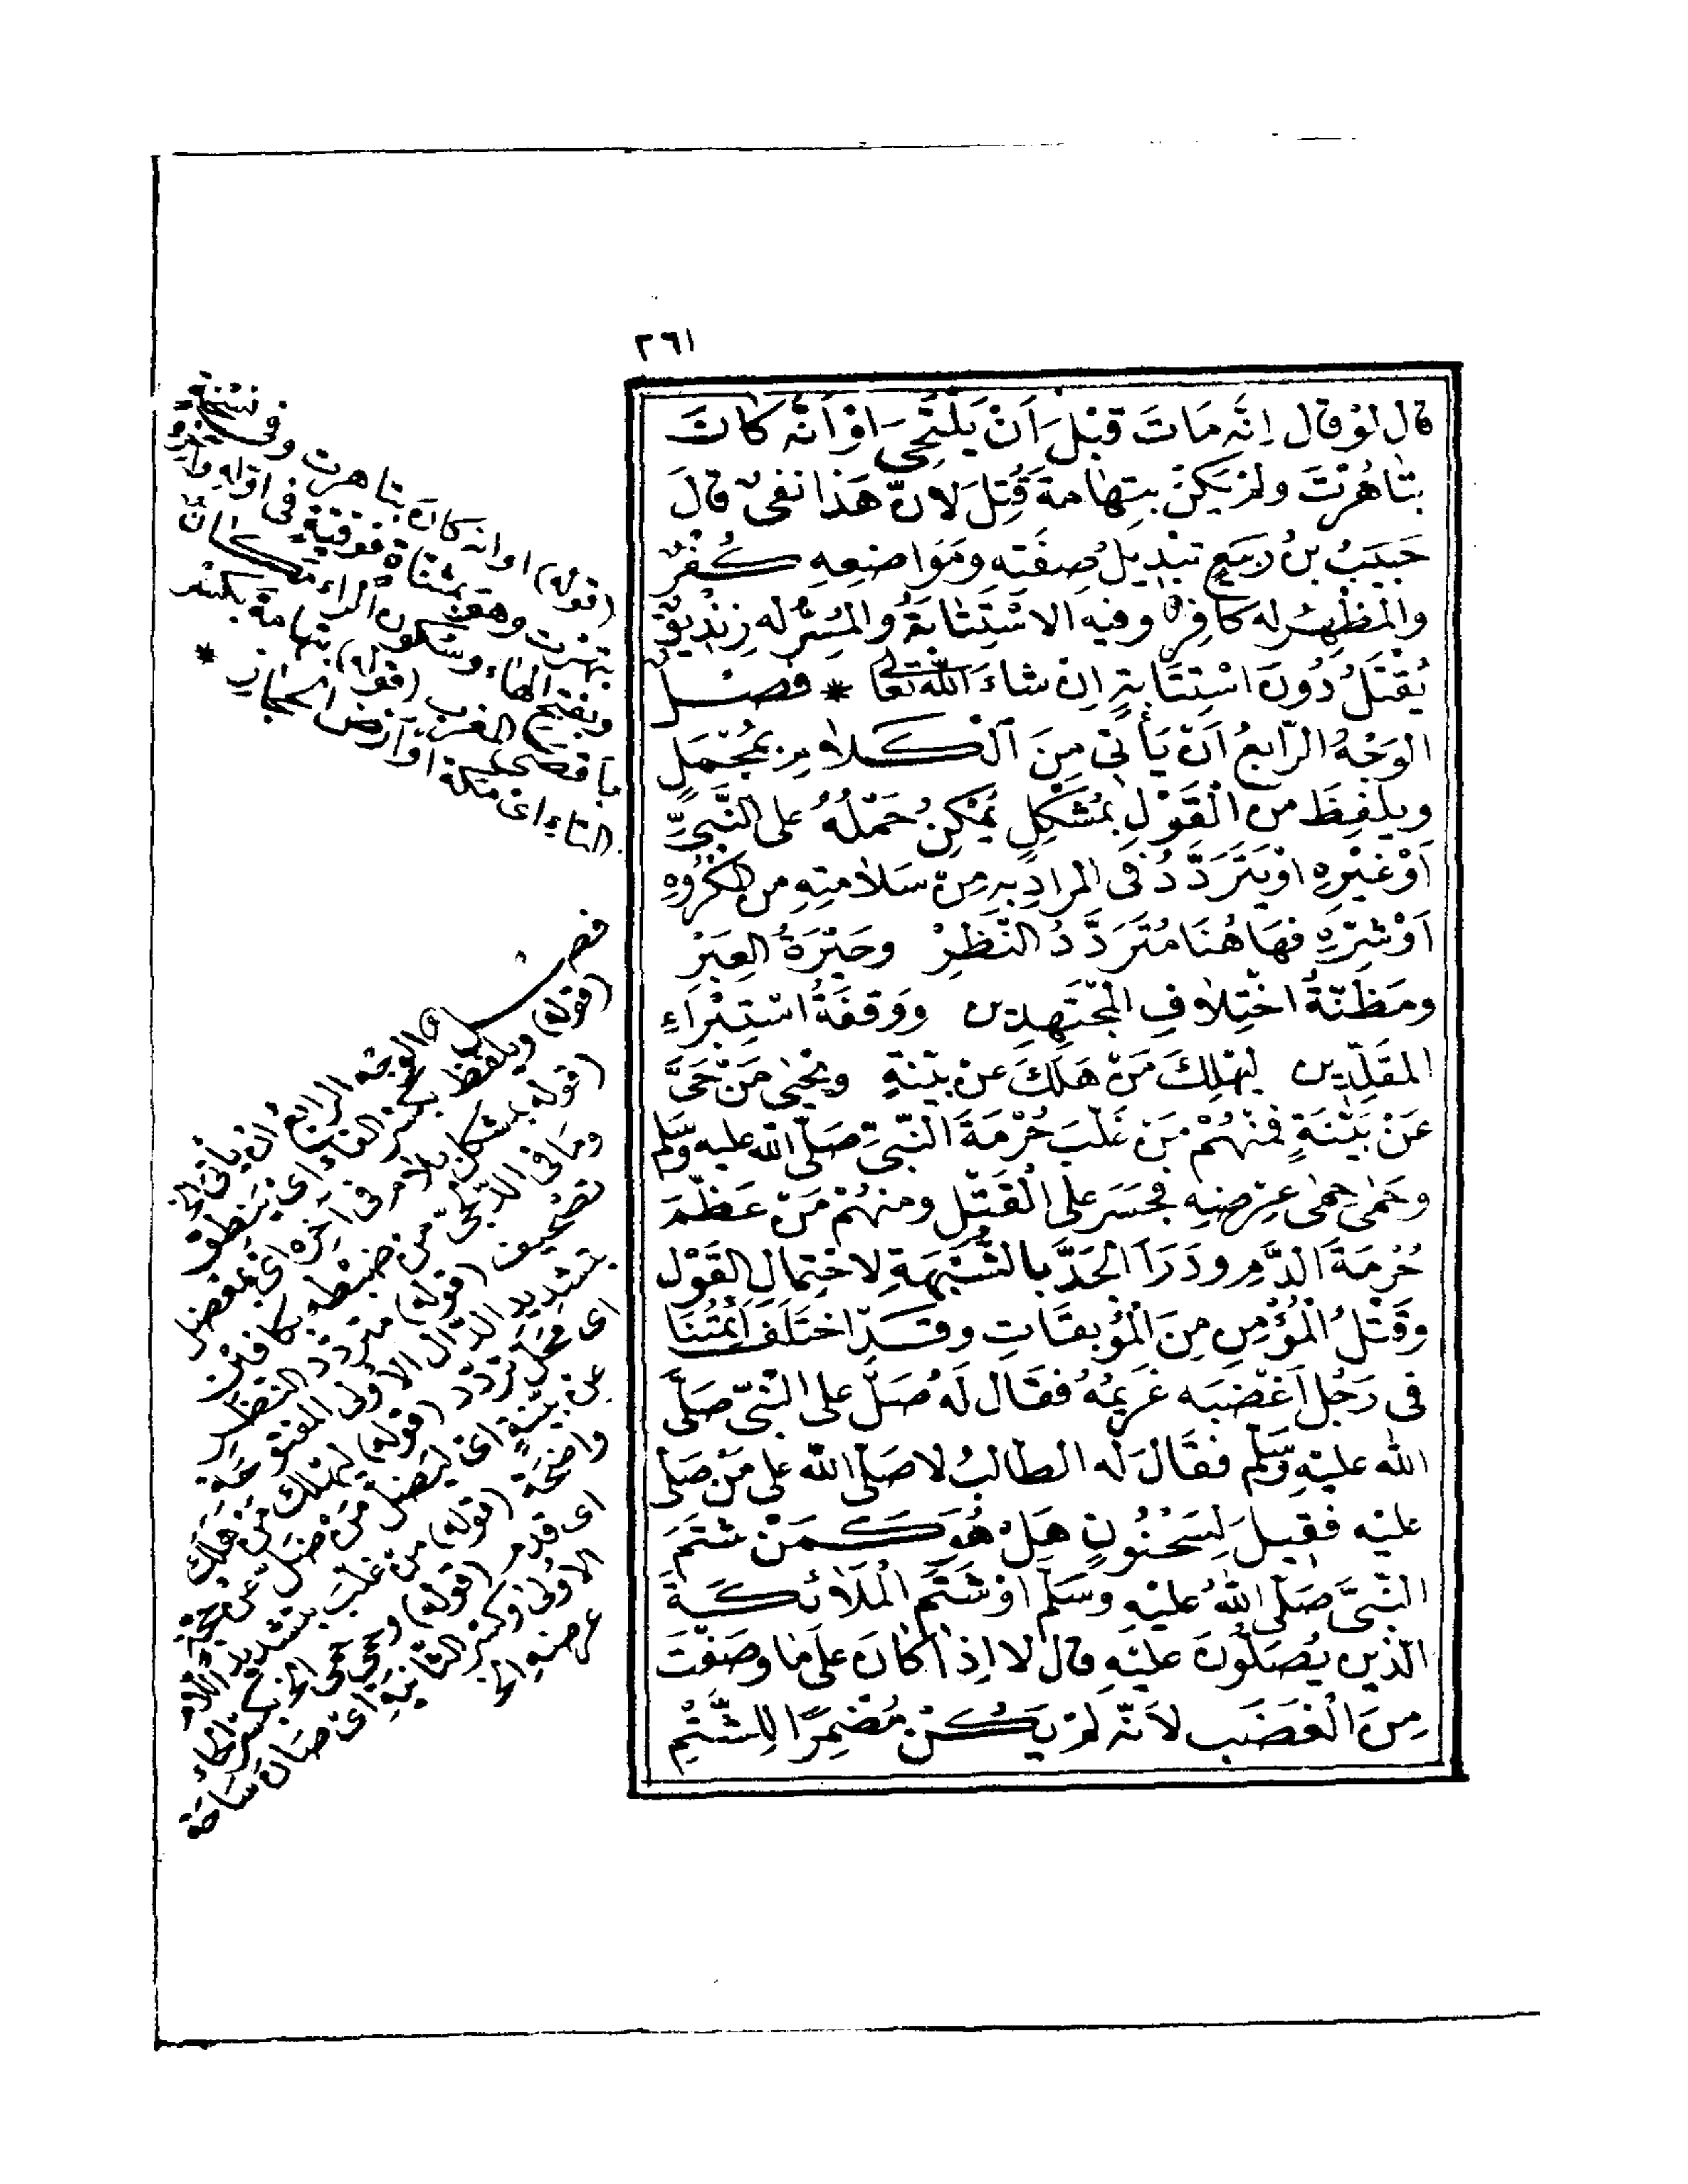 ٢٦١
قال لَوْ قال اِنَّه مَاتَ قَبْلَ اَنْ يَلْتَحِىَ اَوْ اَنَّه كَانَ
بتَاهَرْتَ ولم يَكنْ بِتِهَامةَ قُتِلَ لانّ هَذا نفىٌ قال
حَبيبُ بنُ رَبِيعٍ تبْدِيلُ صِفَتِهِ ومَوَاضعِهِ كُفْرٌ
والمُظْهِرُ له كَافِرٌ وفيه الاسْتِتَابَةُ والمُسِرُّ له زِنْدِيقٌ
يُقْتَلُ دُونَ اسْتِتَابةٍ اِنْ شاءَ الله تعالى * فصـل
الوَجْهُ الرّابِعُ اَنْ يَأتِىَ مِنَ الْكَلامِ بمُجْمَلٍ
ويلفِظَ من الْقَوْلِ بمُشْكِلٍ يُمْكِنُ حَمْلُهُ على النَّبِىِّ
اَوْ غيْرِهِ اوْ يَتَرَدَّدُ فى المرادِ بِهِ مِنْ سَلامَتِهِ من المكْرُوهِ
اَوْ شَرِّهِ فهَاهُنَا مُتَرَدَّدُ النَّظَرِ وحَيْرَةُ العِبَرِ
ومَظَنَّةُ اخْتِلافِ المجْتَهِدِين ووَقفَةُ اسْتِبْرَاءِ
المقَلِّدِين ليَهْلِكَ مَنْ هَلَكَ عن بيّنَةٍ ويَحْيَى مَنْ حَىَّ
عَنْ بَيِّنَةٍ فمنْهُمْ مَنْ غَلّبَ حُرْمَةَ النَّبِىِّ صَلَّى الله عليه وسَلم
وحَمَى حِمَى عِرْضِهِ فجَسَرَ على الْقَتْلِ ومنهُمْ مَنْ عَظَّمَ
حُرْمَةَ الدَّمِ ودَرَأَ الحَدَّ بالشُّبْهَةِ لاحْتِمالِ القَوْل
وقَتْلُ المُؤْمِنِ مِنَ الْمُوبِقَاتِ وقَدِ اخْتَلَفَ اَئِمَّتُنَا
فى رَجُلٍ اَغْضَبَه غَرِيمُهُ فقَال لَهُ صَلِّ على النَّبِىِّ صَلَّى
الله عليْهِ وسَلم فقَالَ لَه الطالِبُ لا صَلى الله على مَنْ صَلى
عليْه فقيلَ لِسَحْنُونٍ هَلْ هُوَ كَمَنْ شَتَمَ
النَّبِىَّ صَلى اللهُ عليْهِ وسَلّمَ اَوْ شَتَمَ الْمَلائكَةَ
الّذِين يُصَلُّونَ عليْهِ قال لا اِذَا كانَ عَلَى مَا وصَفْتَ
مِنَ الْغَضَب لاَنّه لمْ يَكُنْ مُضْمِرًا لِلشَّتْمِ
(قوله) او انه كان بتاهرت وفى نسْخةٍ
بتهرت وهو بمثناة فوقيّةٍ فى اوّله وآخِره
وبفتح الهاء وسُكون الراء مكانٌ
باقصى الغرب (قوله) بتهامة بكسْر
التاء اى مكة او اَرْض الحجاز *
فصـل الوجه الرابع ان يأتى الخ
(قوله) ويلفظ بكسر الفاء اى ينطق
(قوله بمشكل بلام فى آخره اى بمعضل
وما فى الدّلجىّ من ضبْطه بكافين
تصحيف (قوله) متردد النظر
بتشديد الدّال الاولى المفتوحَةِ
اى محَلّ تردّد (قوله) ليهلك من هلك
عن بيّنةٍ اى ليضلّ مَنْ ضلّ عن حجّةٍ
واضحَة (قوله) من غلبَ بتشديد اللام
اى قدّم (قوله) وحمى حمى الخ بكسر الحاء
الاولى وكسر الثانيةِ اى صَانَ سَاحة
عرضه الخ